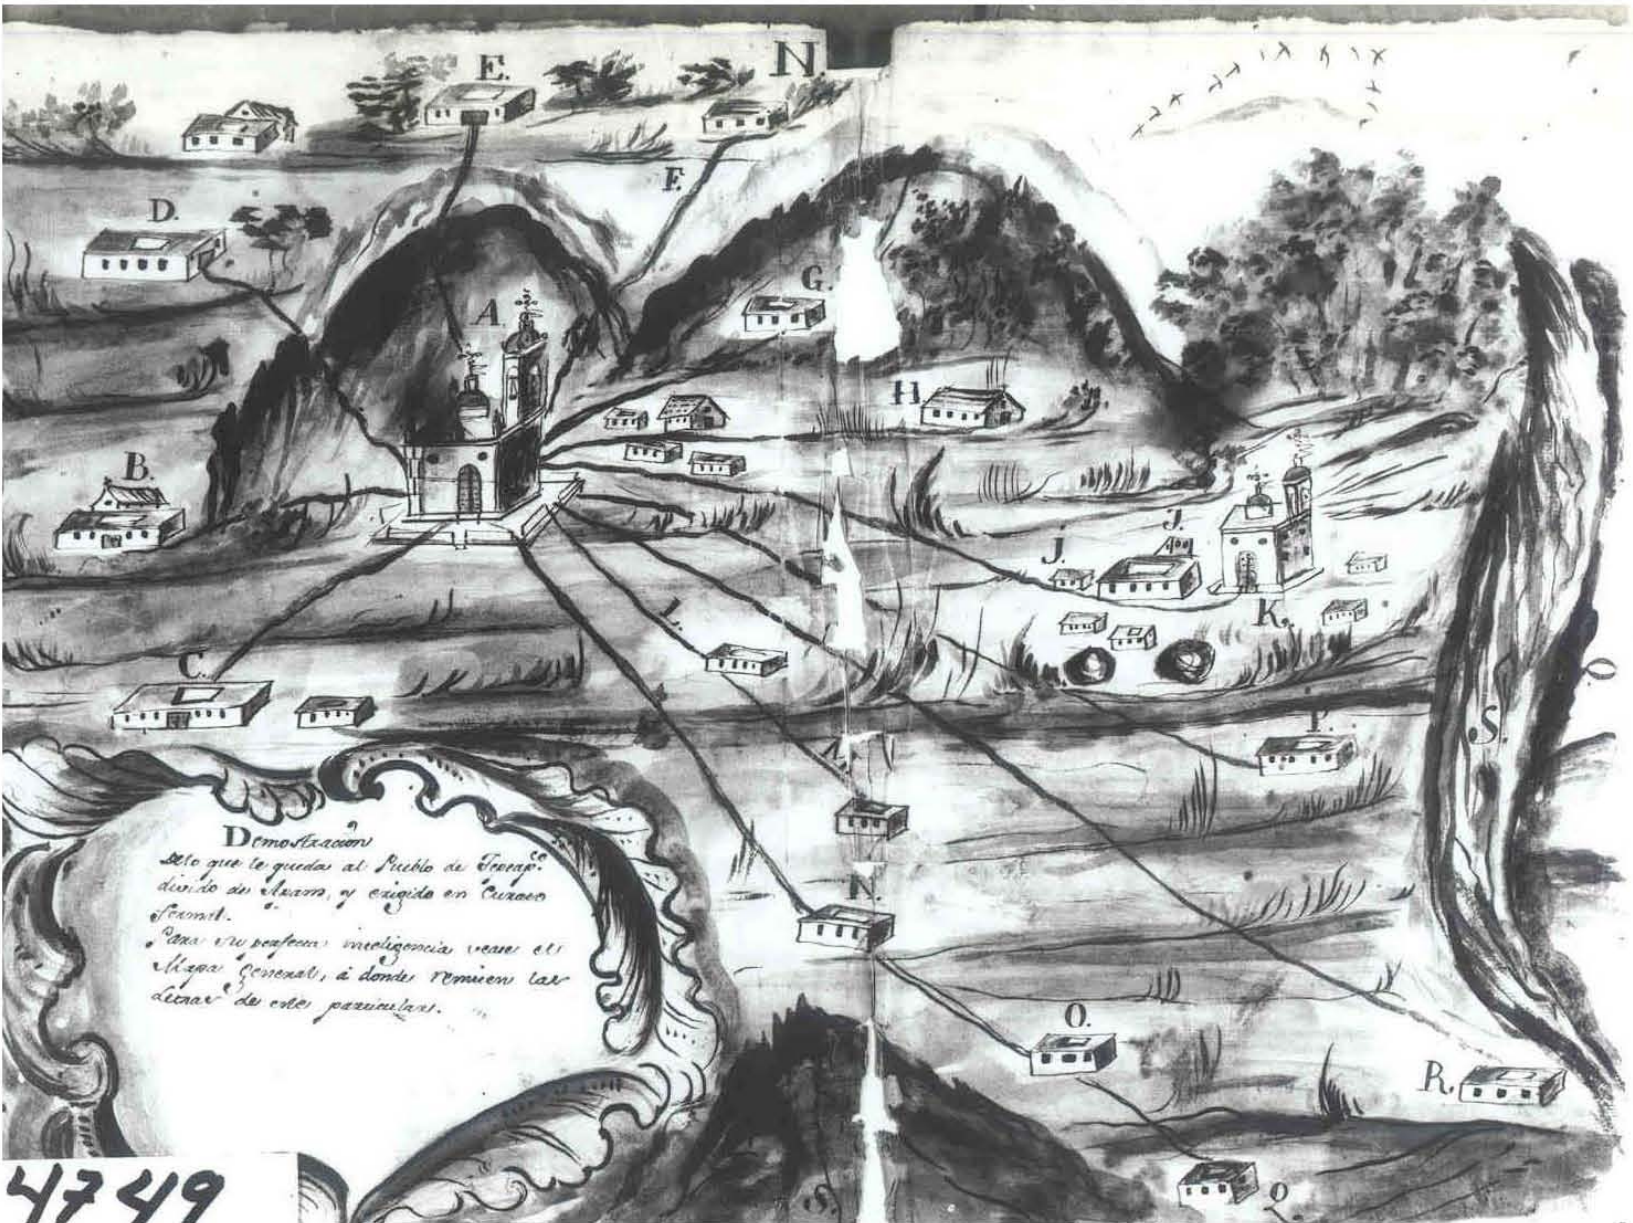 E.
N.
D.
F.
A.
G.
H.
B.
J.
J.
K.
L.
C.
S.
O
P.
Demostracion
Delo que le queda al Pueblo de
divido de y erigido en Curato
formal.
Para su perfecta inteligencia vease el
Mapa General, á donde remiten las
Letras de este particular.
N.
O.
R.
Q.
S.
4749